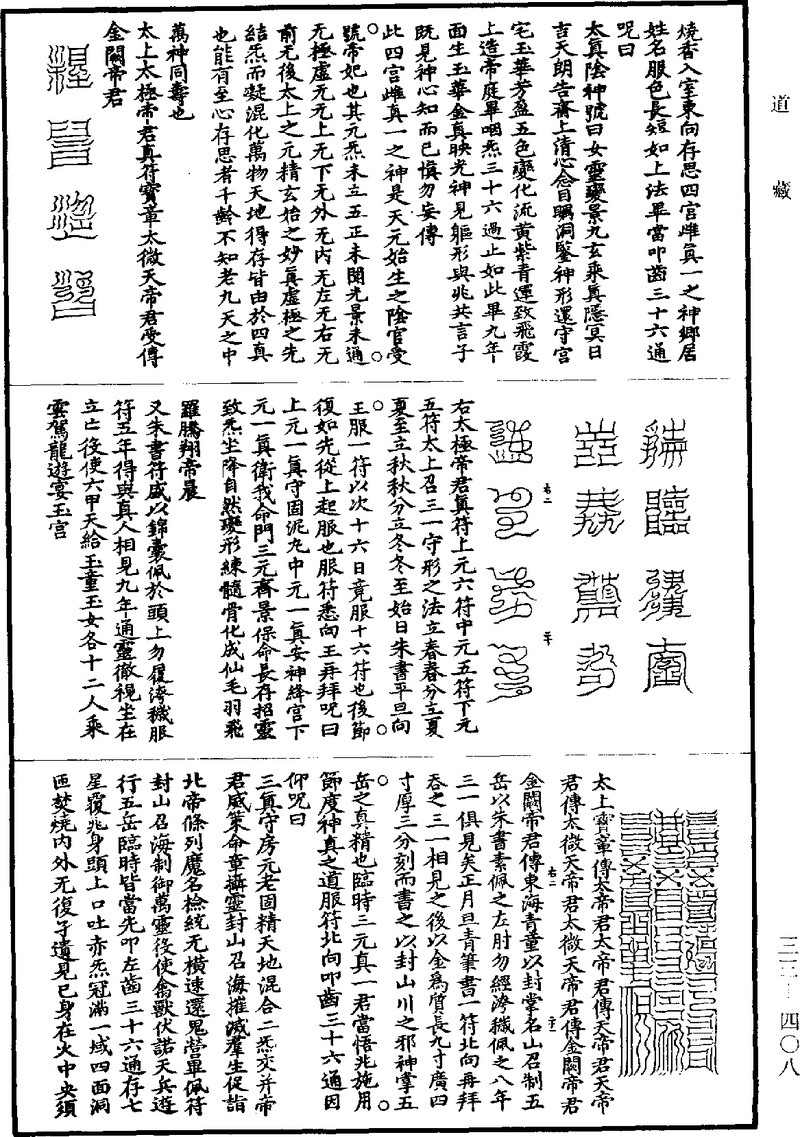 道藏
三三—四〇八
燒香入室東向存思四宮雌真一之神鄉居
姓名服色長短如上法畢當叩齒三十六通
呪曰
太真陰神號曰女靈變景九玄乘真隱冥日
吉天朗告齋上清心念目矚洞鑒神形還守宮
宅玉華芳盈五色變化流黃紫青運致飛霞
上造帝庭畢咽炁三十六過止如此畢九年
面生玉華金真映光神見軀形與兆共言子
既見神心知而已慎勿妄傳
此四宮雌真一之神是天元始生之陰官受
號帝妃也其元炁未立五正未開光景未通
无極虛无无上无下无外无內无左无右无
前无後太上之元精玄始之妙真虛極之先
結炁而凝混化萬物天地得存皆由於四真
也能有至心存思者千齡不知老九天之中
萬神同壽也
太上太極帝君真符寶章太微天帝君受傳
金闕帝君
右二
右太極帝君真符上元六符中元五符下元
五符太上召三一守形之法立春春分立夏
夏至立秋秋分立冬冬至始日朱書平旦向
王服一符以次十六日竟服十六符也後節
復如先從上起服也服符悉向王再拜呪曰
上元一真守固泥丸中元一真安神絳宮下
元一真衛我命門三元齊景保命長存招靈
致炁坐降自然變形練髓骨化成仙毛羽飛
羅騰翔帝晨
又朱書符盛以錦囊佩於頭上勿履洿穢服
符五年得與真人相見九年通靈徹視坐在
立亡後使六甲天給玉童玉女各十二人乘
雲駕龍遊宴玉宮
太上寶章傳太帝君太帝君傳天帝君天帝
君傳太微天帝君太微天帝君傳金闕帝君
金闕帝君傳東海青童以封掌名山召制五
岳以朱書素佩之左肘勿經洿穢佩之八年
三一俱見矣正月旦青筆書一符北向再拜
吞之三一相見之後以金為質長九寸廣四
寸厚三分刻而書之以封山川之邪神掌五
岳之真精也臨時三元真一君當悟兆施用
節度神真之道服符北向叩齒三十六通因
仰呪曰
三真守房元老固精天地混合二炁交并帝
君威策命章攝靈封山召海摧滅羣生促詣
北帝條列魔名檢統无橫速還鬼營畢佩符
封山召海制御萬靈役使禽獸伏諾天兵遊
行五岳臨時皆當先叩左齒三十六通存七
星覆兆身頭上口吐赤炁冠滿一域四面洞
匝焚燒內外无復孑遺見己身在火中央須